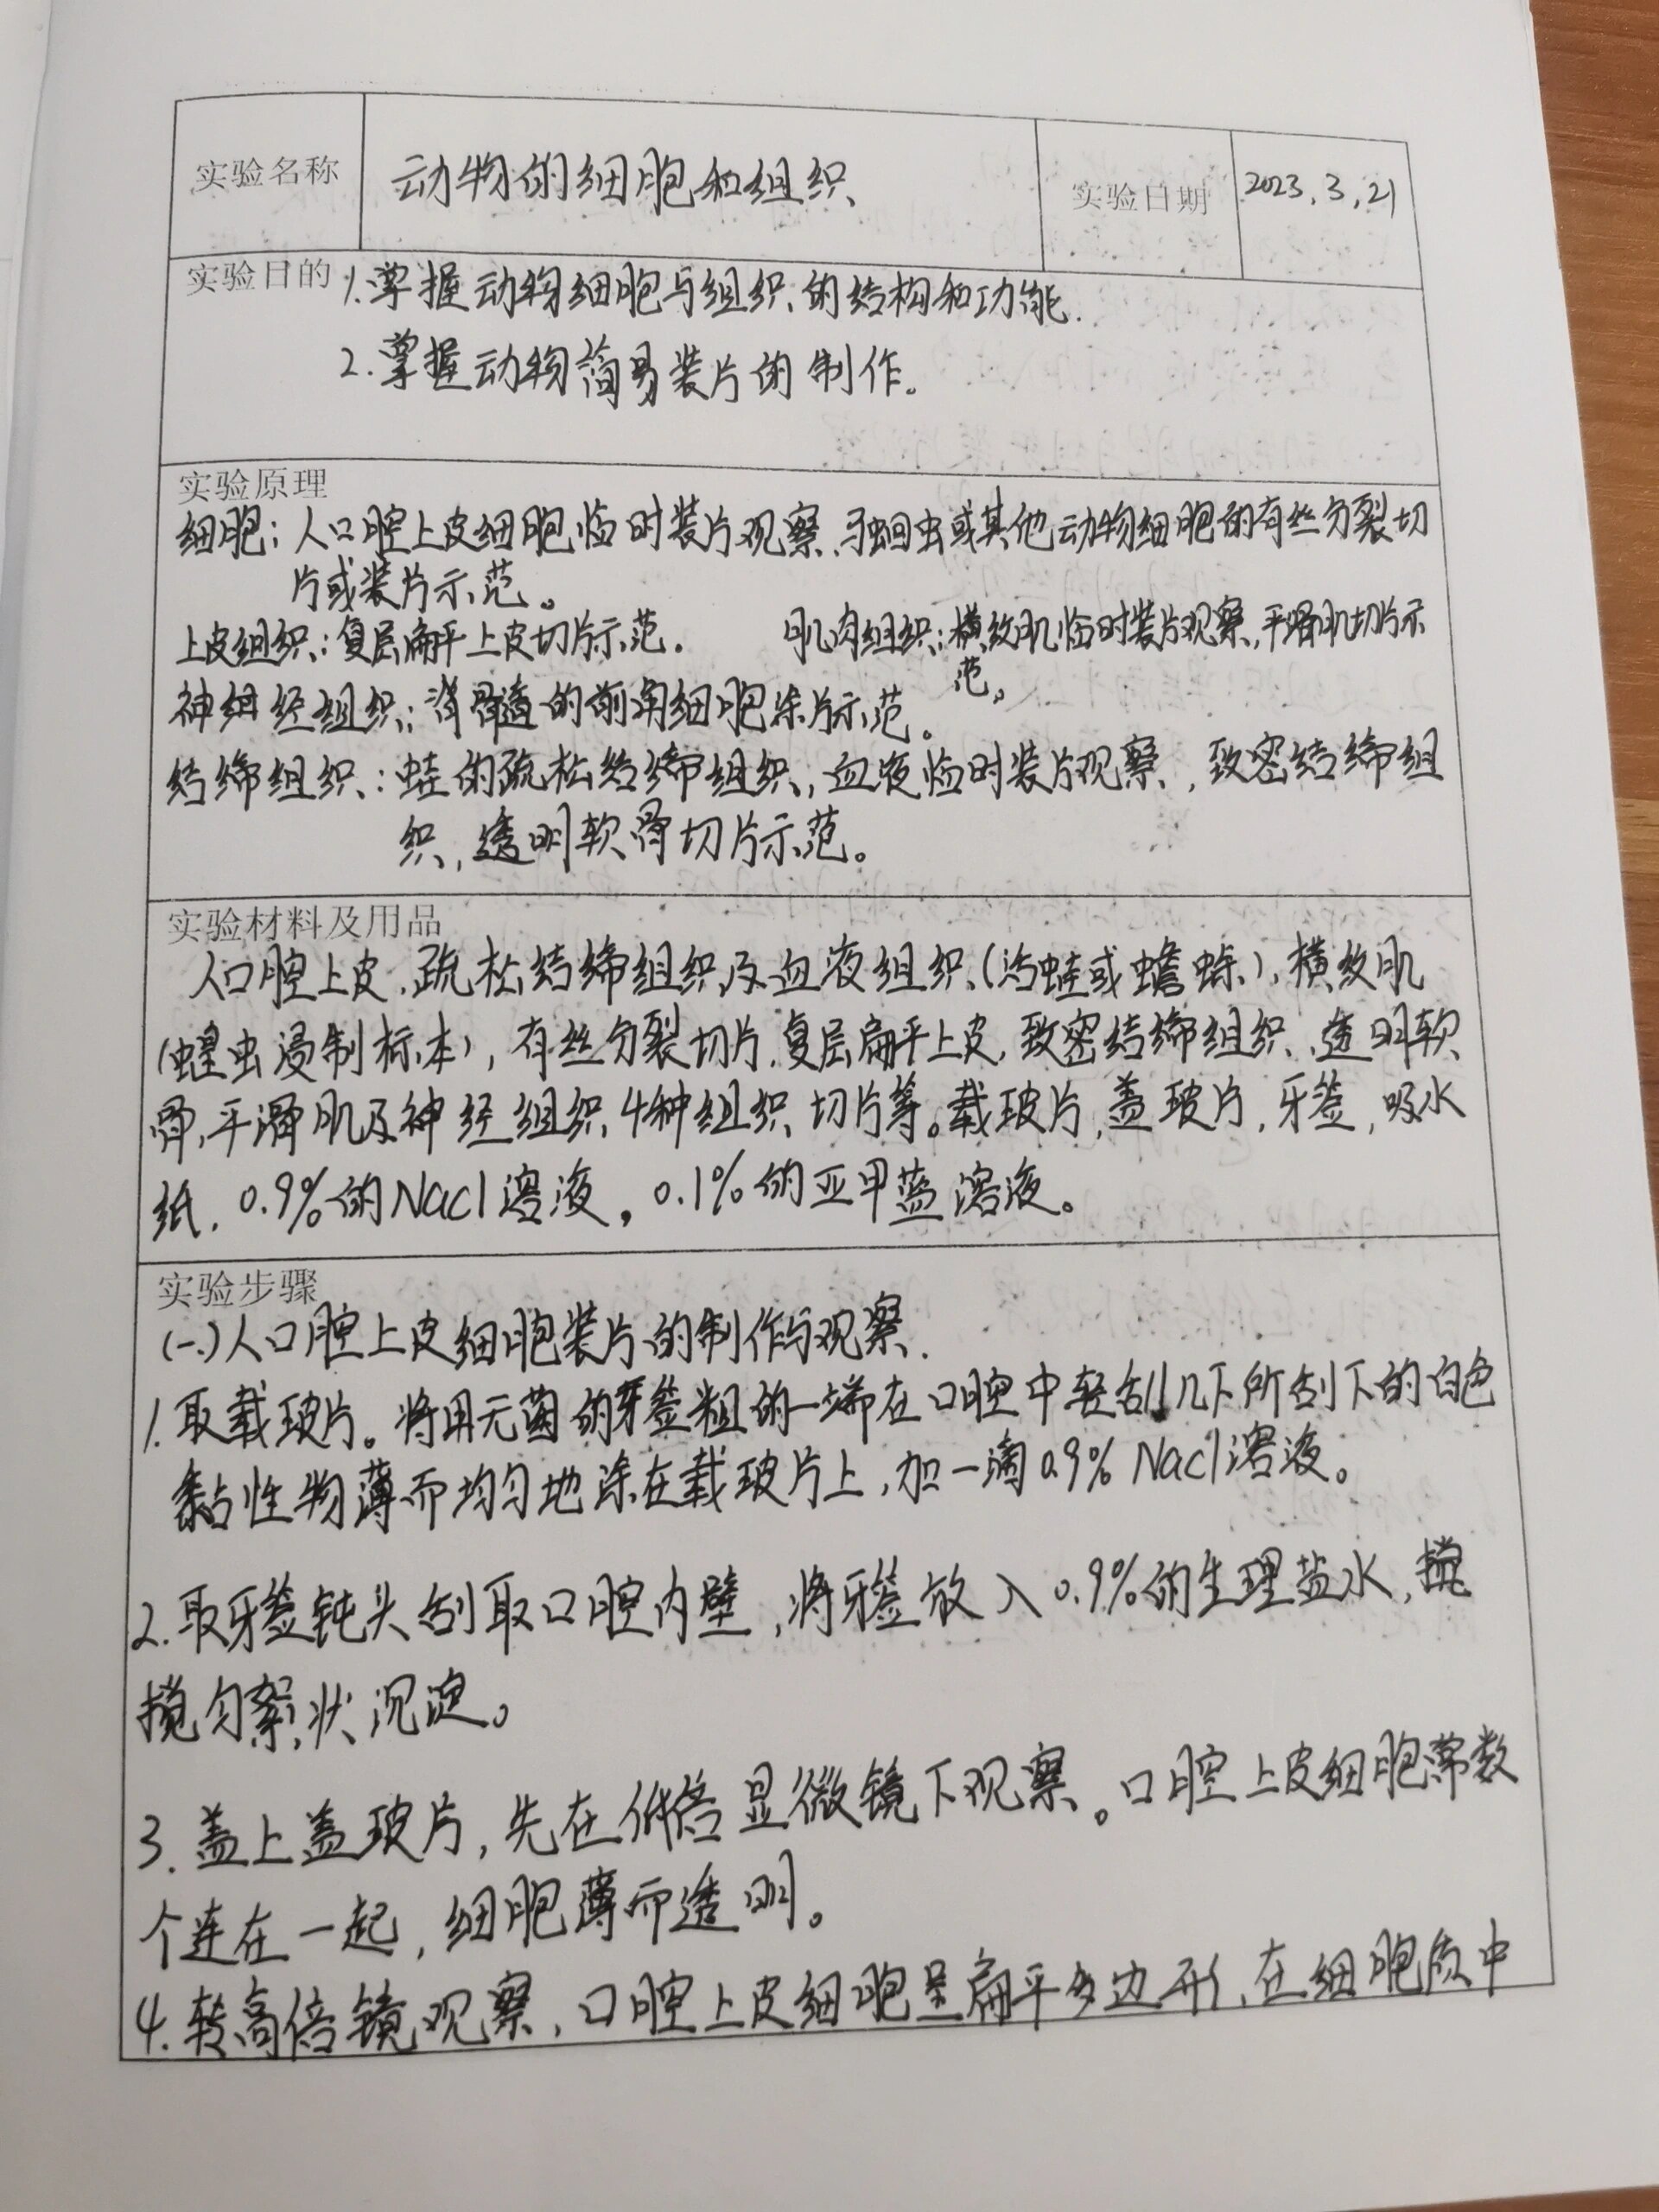 实验名称 动物的细胞和组织 实验日期 2023.3.21
实验目的 1.掌握动物细胞与组织的结构和功能.
2.掌握动物简易装片的制作。
实验原理
细胞:人口腔上皮细胞临时装片观察、马蛔虫或其他动物细胞的有丝分裂切
片或装片示范。
上皮组织:复层扁平上皮切片示范。 肌肉组织:横纹肌临时装片观察,平滑肌切片示
范。
神经组织:脊髓的前角细胞涂片示范。
结缔组织:蛙的疏松结缔组织,血液临时装片观察,致密结缔组
织,透明软骨切片示范。
实验材料及用品
人口腔上皮,疏松结缔组织及血液组织(活蛙或蟾蜍),横纹肌
(蝗虫浸制标本),有丝分裂切片,复层扁平上皮,致密结缔组织、透明软
骨,平滑肌及神经组织4种组织切片等。载玻片,盖玻片,牙签,吸水
纸,0.9%的NaCl溶液,0.1%的亚甲蓝溶液。
实验步骤
(一)人口腔上皮细胞装片的制作与观察.
1.取载玻片。将用无菌的牙签粗的一端在口腔中轻刮几下所刮下的白色
黏性物薄而均匀地涂在载玻片上,加一滴0.9%NaCl溶液。
2.取牙签钝头刮取口腔内壁,将牙签放入0.9%的生理盐水,搅
搅匀絮状沉淀。
3.盖上盖玻片,先在低倍显微镜下观察。口腔上皮细胞常数
个连在一起,细胞薄而透明。
4.转高倍镜观察,口腔上皮细胞呈扁平多边形,在细胞质中